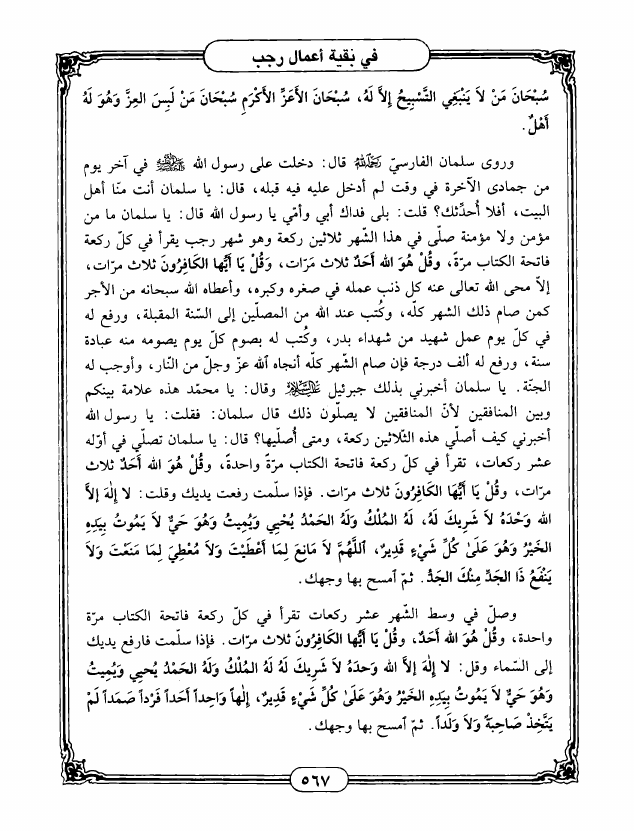 في بقية أعمال رجب
سُبْحَانَ مَنْ لاَ يَنْبَغِي التَّسْبِيحُ إِلاَّ لَهُ، سُبْحَانَ الأَعَزِّ الأَكْرَمِ سُبْحَانَ مَنْ لَبِسَ العِزَّ وَهُوَ لَهُ
أَهْلٌ.
وروى سلمان الفارسيّ رحمه الله قال: دخلت على رسول الله ﷺ في آخر يوم
من جمادى الآخرة في وقت لم أدخل عليه فيه قبله، قال: يا سلمان أنت منّا أهل
البيت، أفلا أُحدِّثك؟ قلت: بلى فداك أبي وأمّي يا رسول الله قال: يا سلمان ما من
مؤمن ولا مؤمنة صلّى في هذا الشّهر ثلاثين ركعة وهو شهر رجب يقرأ في كلّ ركعة
فاتحة الكتاب مرّةً، وقُلْ هُوَ الله أَحَدٌ ثلاث مَرّات، وَقُلْ يَا أَيُّها الكَافِرُونَ ثلاث مرّات،
إلاّ محى الله تعالى عنه كل ذنب عمله في صغره وكبره، وأعطاه الله سبحانه من الأجر
كمن صام ذلك الشهر كلّه، وكُتب عند الله من المصلّين إلى السّنة المقبلة، ورفع له
في كلّ يوم عمل شهيد من شهداء بدر، وكُتب له بصوم كلّ يوم يصومه منه عبادة
سنة، ورفع له ألف درجة فإن صام الشّهر كلّه أنجاه الله عزّ وجلّ من النّار، وأوجب له
الجنّة. يا سلمان أخبرني بذلك جبرئيل عليه السلام وقال: يا محمّد هذه علامة بينكم
وبين المنافقين لأنّ المنافقين لا يصلّون ذلك قال سلمان: فقلت: يا رسول الله
أخبرني كيف أصلّي هذه الثّلاثين ركعة، ومتى أُصلّيها؟ قال: يا سلمان تصلّي في أوّله
عشر ركعات، تقرأ في كلّ ركعة فاتحة الكتاب مرّةً واحدةً، وقُلْ هُوَ الله أَحَدٌ ثلاث
مرّات، وَقُلْ يَا أَيُّهَا الكَافِرُونَ ثلاث مرّات. فإذا سلّمت رفعت يديك وقلت: لا إِلٰهَ إلاَّ
الله وَحْدَهُ لاَ شَرِيكَ لَهُ، لَهُ المُلْكُ وَلَهُ الحَمْدُ يُحْيِي وَيُمِيتُ وَهُوَ حَيٌّ لاَ يَمُوتُ بِيَدِهِ
الخَيْرُ وَهُوَ عَلَىٰ كُلِّ شَيْءٍ قَدِيرٌ، اَللَّهُمَّ لاَ مَانِعَ لِمَا أَعْطَيْتَ وَلاَ مُعْطِيَ لِمَا مَنَعْتَ وَلاَ
يَنْفَعُ ذَا الجَدِّ مِنْكَ الجَدُّ. ثمّ ٱمسح بها وجهك.
وصلّ في وسط الشّهر عشر ركعات تقرأ في كلّ ركعة فاتحة الكتاب مرّة
واحدة، وقُلْ هُوَ الله أَحَدٌ، وقُلْ يَا أَيُّها الكَافِرُونَ ثلاث مرّات. فإذا سلّمت فارفع يديك
إلى السّماء وقل: لا إِلٰهَ إلاَّ الله وَحدَهُ لاَ شَرِيكَ لَهُ لَهُ المُلْكُ وَلَهُ الحَمْدُ يُحيي وَيُمِيتُ
وَهُوَ حَيٌّ لاَ يَمُوتُ بِيَدِهِ الخَيْرُ وَهُوَ عَلَىٰ كُلِّ شَيْءٍ قَدِيرٌ، إِلٰهاً وَاحِداً أَحَداً فَرْداً صَمَداً لَمْ
يَتَّخِذْ صَاحِبَةً وَلاَ وَلَداً. ثمّ ٱمسح بها وجهك.
٥٦٧